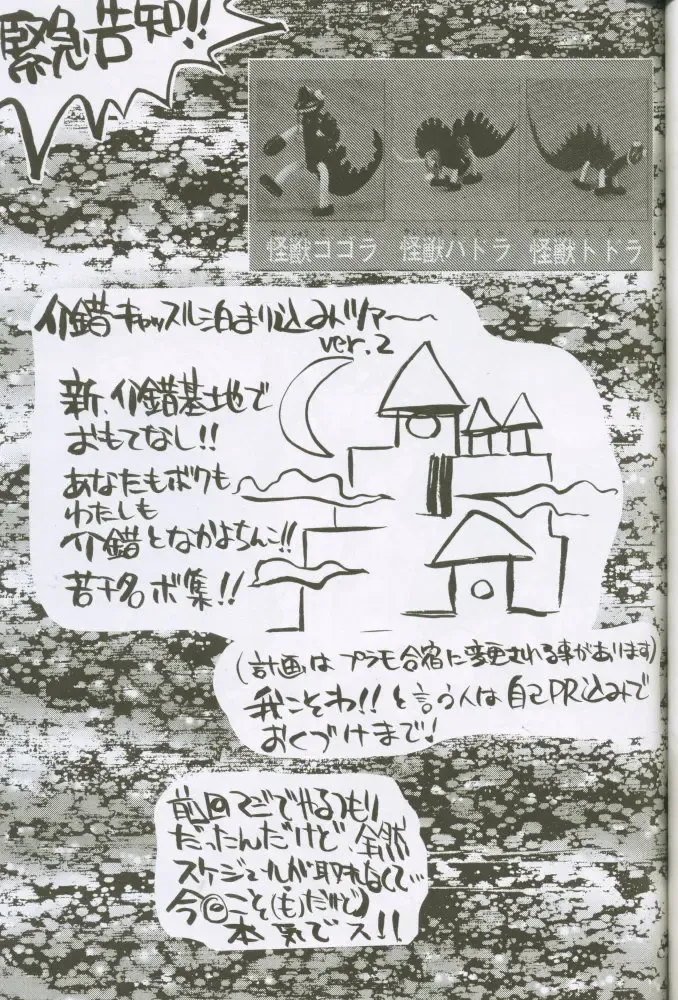 緊急告知!!
怪獣ゴゴラ 怪獣ハドラ 怪獣トドラ
介錯キャッスル泊まり込みツアー
ver.2
新、介錯基地で
おもてなし!!
あなたもボクも
わたしも
介錯となかよちんこ!!
若干名ボ集!!
(計画はプラモ合宿に変更される事があります)
我こそわ!!と言う人は自己PR込みで
おくづけまで!
前回マジでやるつもり
だったんだけど、全然
スケジュールが取れなくて…
今回こそ(も)だけど
本気でス!!